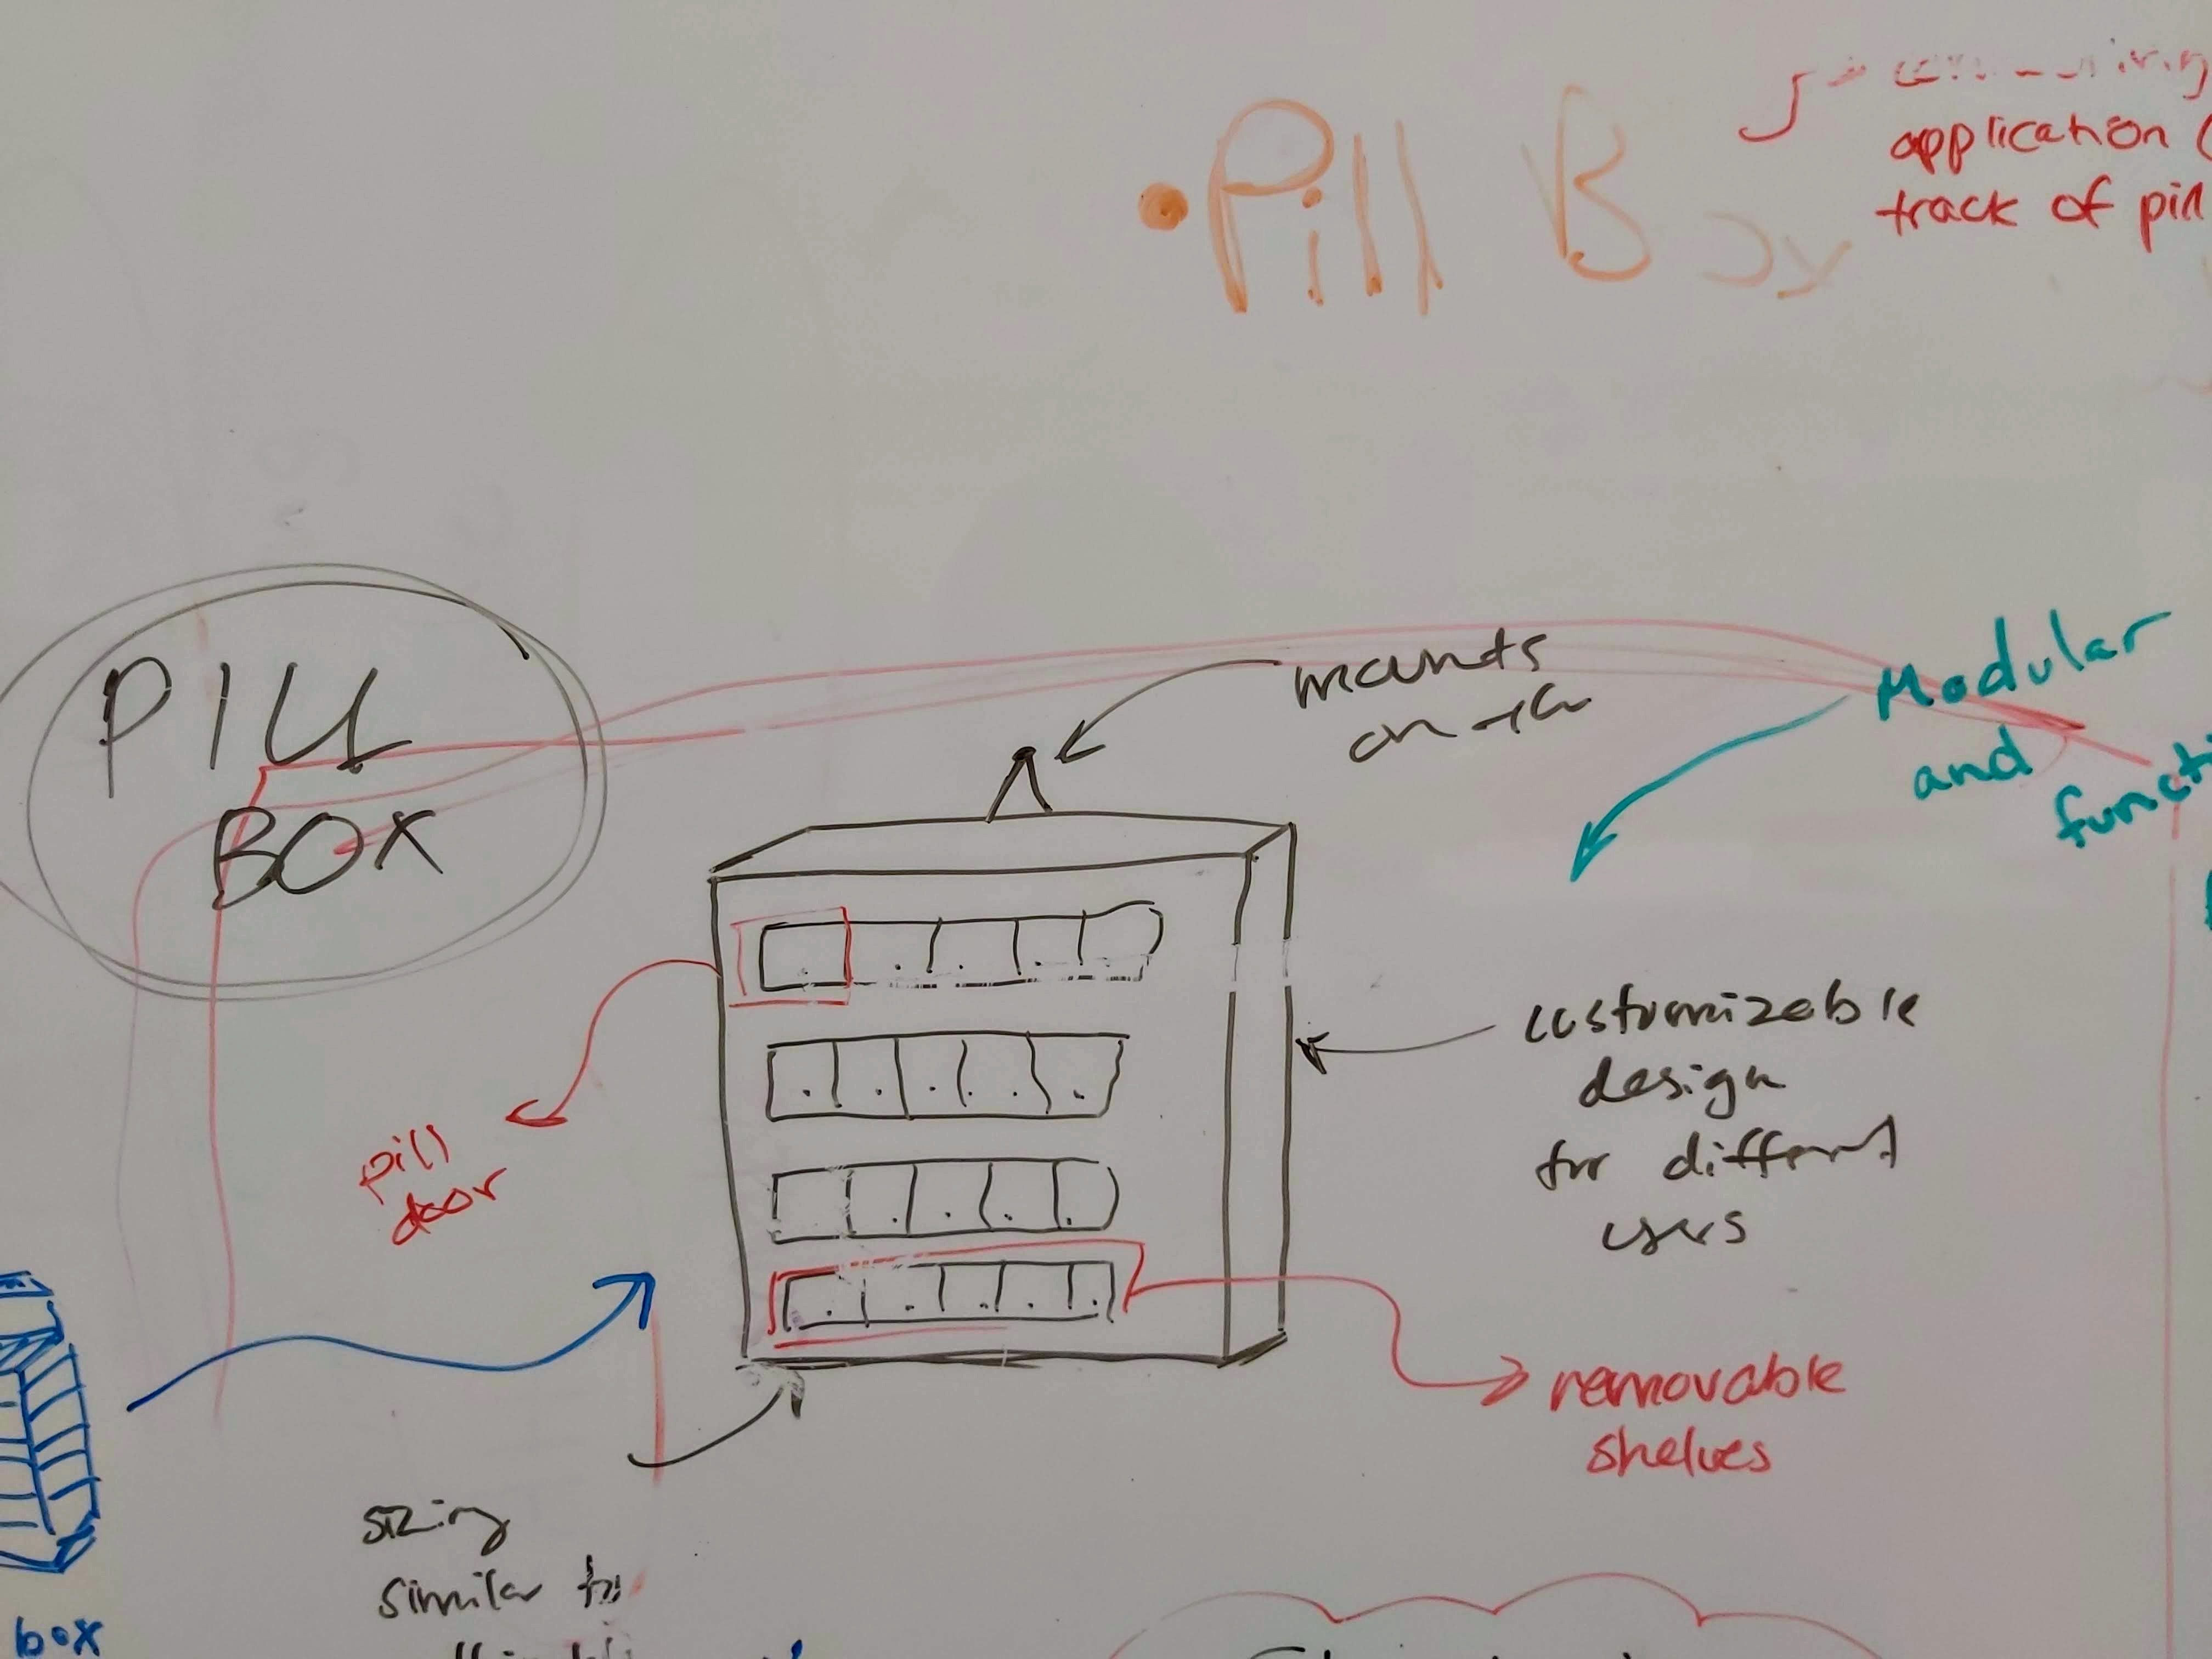 application (
track of pill
• Pill Box
PILL
BOX
mounts
Modular
and
pill
door
customizable
design
for different
users
removable
shelves
sizing
similar to
box